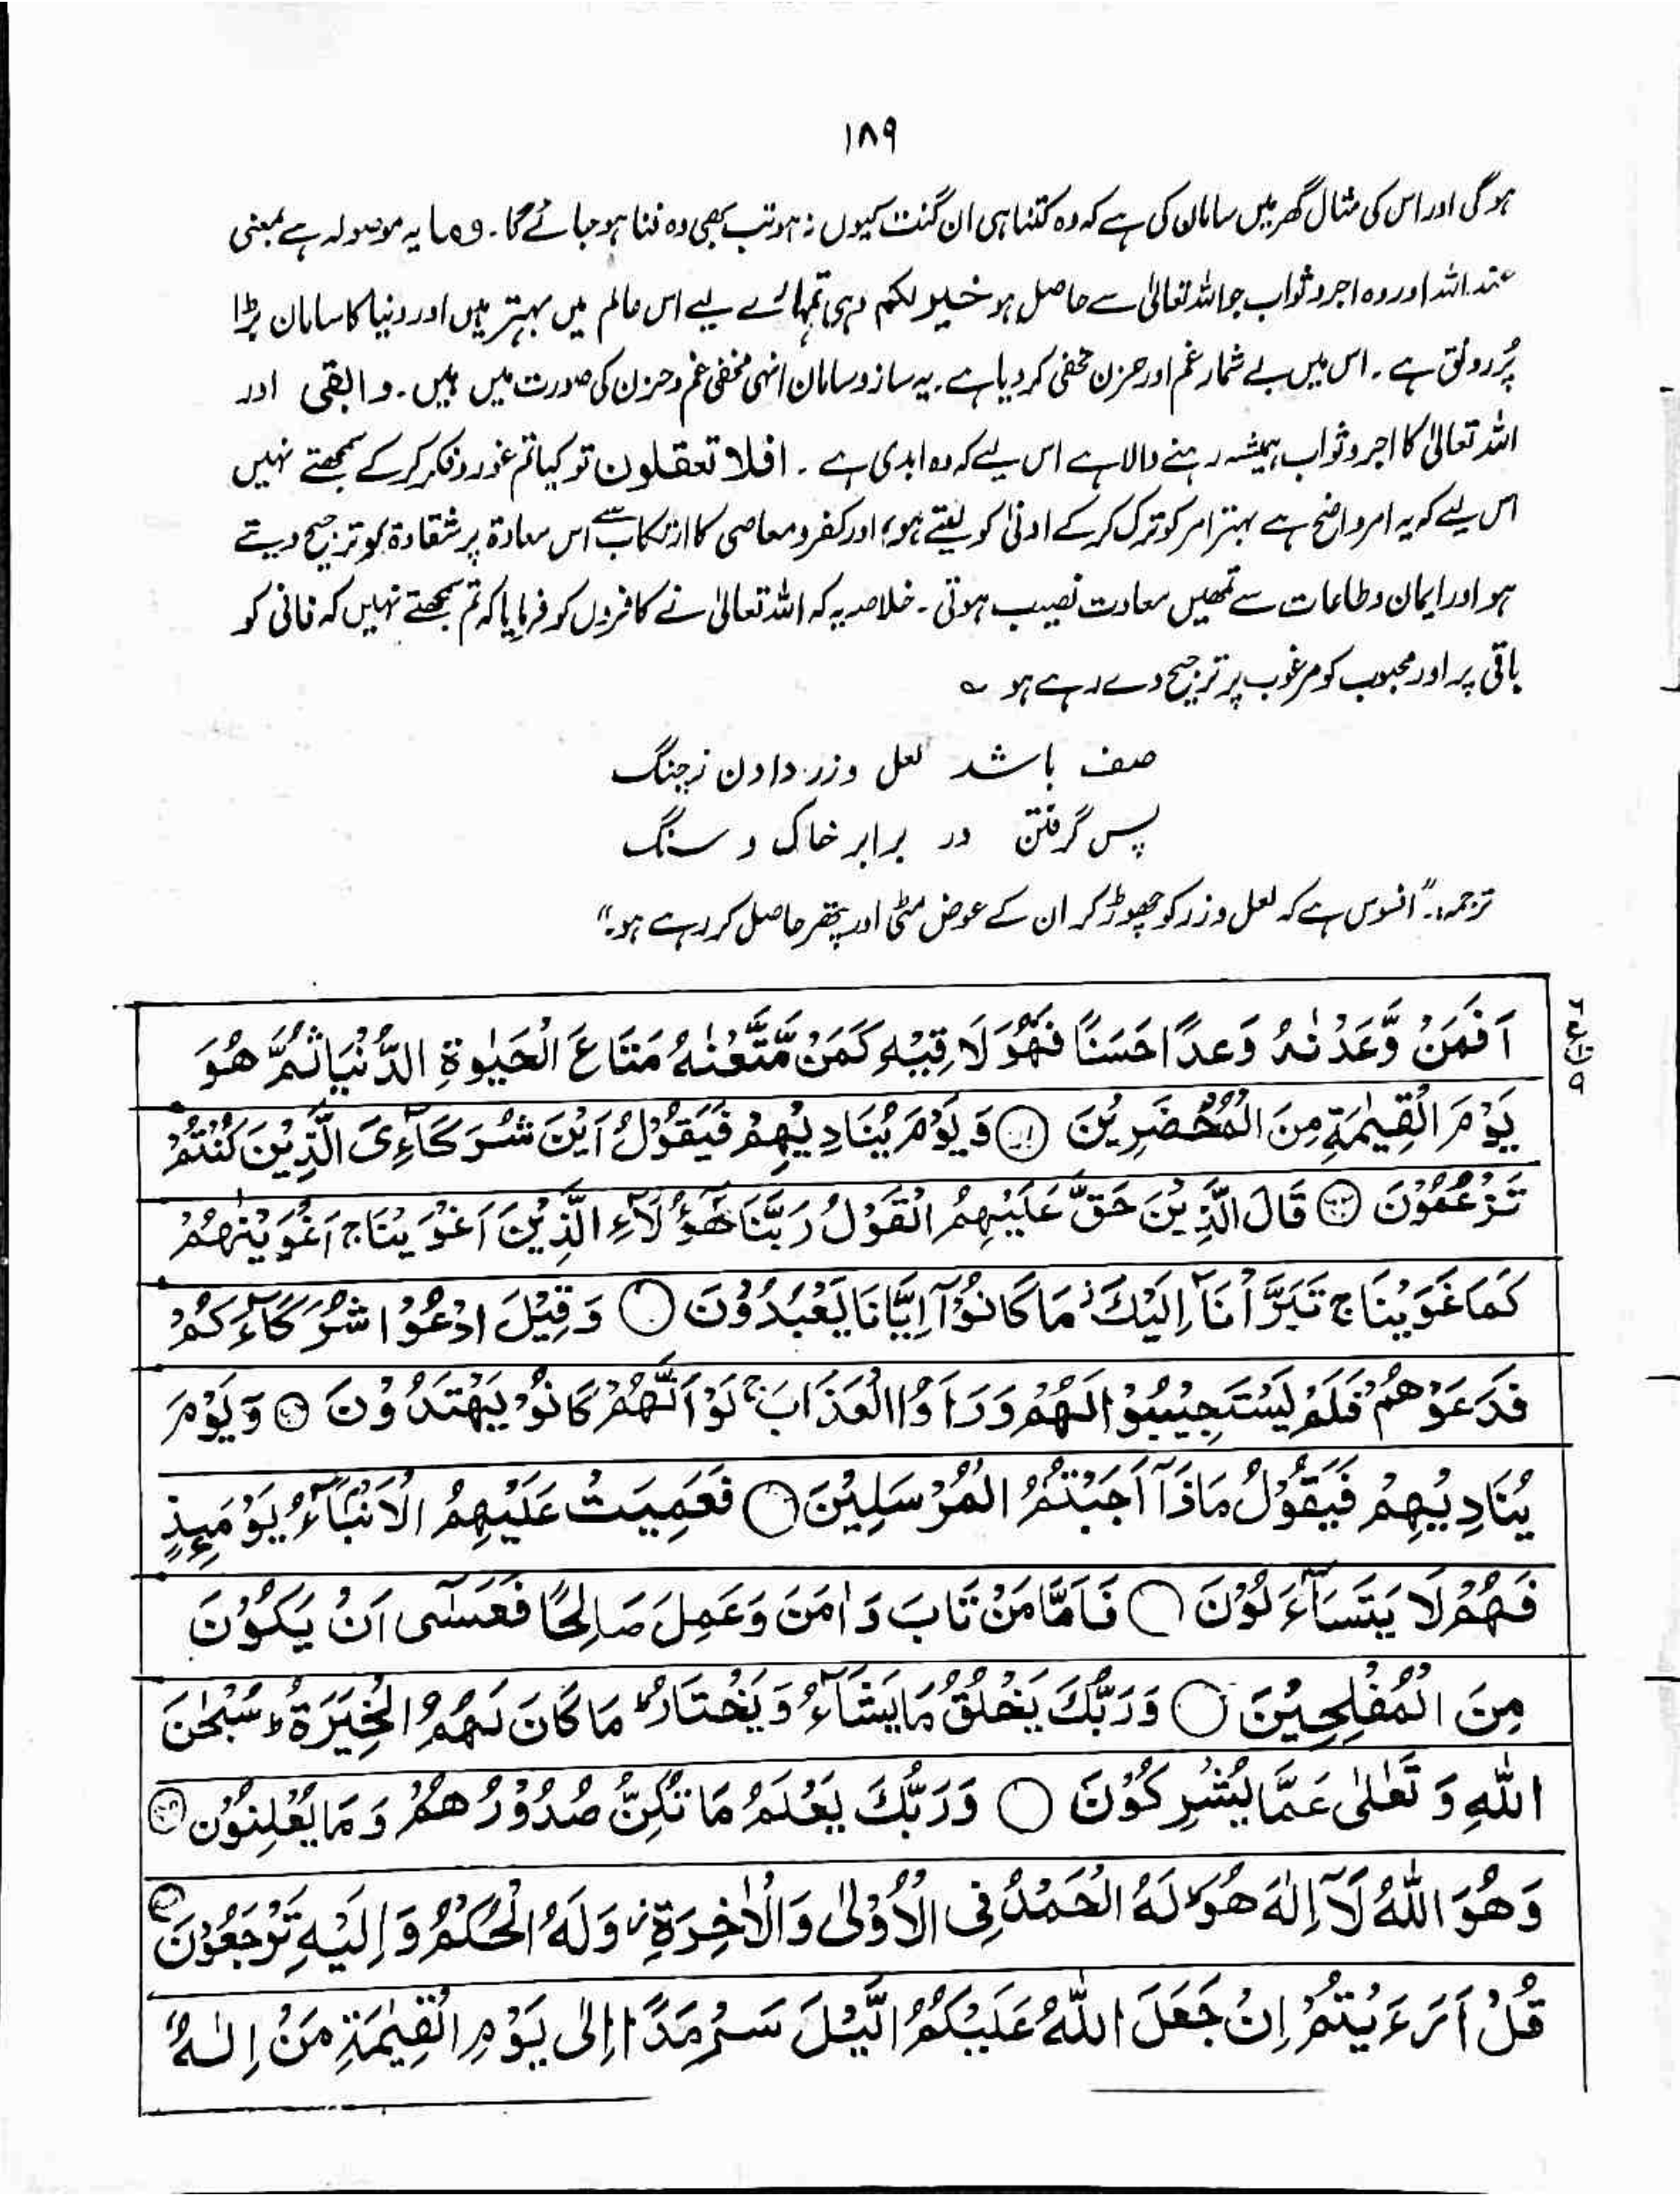 ۱۸۹
ہوگی اور اس کی مثال گھر میں سامان کی ہے کہ وہ کتنا ہی ان گنت کیوں نہ ہو تب بھی وہ فنا ہو جائے گا۔ وما یہ موصولہ ہے بمعنی
عند اللہ اور وہ اجر و ثواب جو اللہ تعالیٰ سے حاصل ہو خیر لکم وہی تمہارے لیے اس عالم میں بہتر ہیں اور دنیا کا سامان بڑا
پُر رونق ہے۔ اس میں بے شمار غم اور حزن مخفی کر دیا ہے۔ یہ ساز و سامان انہی مخفی غم و حزن کی صورت میں ہیں۔ و ابقی اور
اللہ تعالیٰ کا اجر و ثواب ہمیشہ رہنے والا ہے اس لیے کہ وہ ابدی ہے ۔ افلا تعقلون تو کیا تم غور و فکر کر کے سمجھتے نہیں
اس لیے کہ یہ امر واضح ہے بہتر امر کو ترک کر کے ادنیٰ کو لیتے ہو، اور کفر و معاصی کا ارتکاب سے اس سعادۃ پر شقاوۃ کو ترجیح دیتے
ہو اور ایمان و طاعات سے تمھیں سعادت نصیب ہوتی ۔ خلاصہ یہ کہ اللہ تعالیٰ نے کافروں کو فرمایا کہ تم سمجھتے نہیں کہ فانی کو
باقی پر اور محبوب کو مرغوب پر ترجیح دے رہے ہو ؎
صف باشد لعل و زر دادن زچنگ
پس گرفتن در برابر خاک و سنگ
ترجمہ: "افسوس ہے کہ لعل و زر کو چھوڑ کر ان کے عوض مٹی اور پتھر حاصل کر رہے ہو۔"
اَفَمَنْ وَّعَدْنٰهُ وَعدًا حَسَنًا فَهُوَ لَاقِيْهِ كَمَنْ مَّتَّعْنٰهُ مَتَاعَ الْحَيٰوةِ الدُّنْيَا ثُمَّ هُوَ
يَوْمَ الْقِيٰمَةِ مِنَ الْمُحْضَرِيْنَ ○ وَيَوْمَ يُنَادِيْهِمْ فَيَقُوْلُ اَيْنَ شُرَكَآءِىَ الَّذِيْنَ كُنْتُمْ
تَزْعُمُوْنَ ○ قَالَ الَّذِيْنَ حَقَّ عَلَيْهِمُ الْقَوْلُ رَبَّنَا هٰٓؤُلَآءِ الَّذِيْنَ اَغْوَيْنَا ج اَغْوَيْنٰهُمْ
كَمَا غَوَيْنَا ج تَبَرَّاْنَآ اِلَيْكَ ز مَا كَانُوْٓا اِيَّانَا يَعْبُدُوْنَ ○ وَقِيْلَ ادْعُوْا شُرَكَآءَكُمْ
فَدَعَوْهُمْ فَلَمْ يَسْتَجِيْبُوْا لَهُمْ وَرَاَوُا الْعَذَابَ ج لَوْ اَنَّهُمْ كَانُوْ يَهْتَدُوْنَ ○ وَيَوْمَ
يُنَادِيْهِمْ فَيَقُوْلُ مَاذَآ اَجَبْتُمُ الْمُرْسَلِيْنَ ○ فَعَمِيَتْ عَلَيْهِمُ الْاَنْبَآءُ يَوْمَئِذٍ
فَهُمْ لَا يَتَسَآءَلُوْنَ ○ فَاَمَّا مَنْ تَابَ وَاٰمَنَ وَعَمِلَ صَالِحًا فَعَسٰٓى اَنْ يَكُوْنَ
مِنَ الْمُفْلِحِيْنَ ○ وَرَبُّكَ يَخْلُقُ مَا يَشَآءُ وَيَخْتَارُ ط مَا كَانَ لَهُمُ الْخِيَرَةُ ط سُبْحٰنَ
اللّٰهِ وَتَعٰلٰى عَمَّا يُشْرِكُوْنَ ○ وَرَبُّكَ يَعْلَمُ مَا تُكِنُّ صُدُوْرُهُمْ وَمَا يُعْلِنُوْنَ ○
وَهُوَ اللّٰهُ لَآ اِلٰهَ هُوَ ط لَهُ الْحَمْدُ فِى الْاُوْلٰى وَالْاٰخِرَةِ ز وَلَهُ الْحُكْمُ وَاِلَيْهِ تُرْجَعُوْنَ ○
قُلْ اَرَءَيْتُمْ اِنْ جَعَلَ اللّٰهُ عَلَيْكُمُ الَّيْلَ سَرْمَدًا اِلٰى يَوْمِ الْقِيٰمَةِ مَنْ اِلٰهٌ